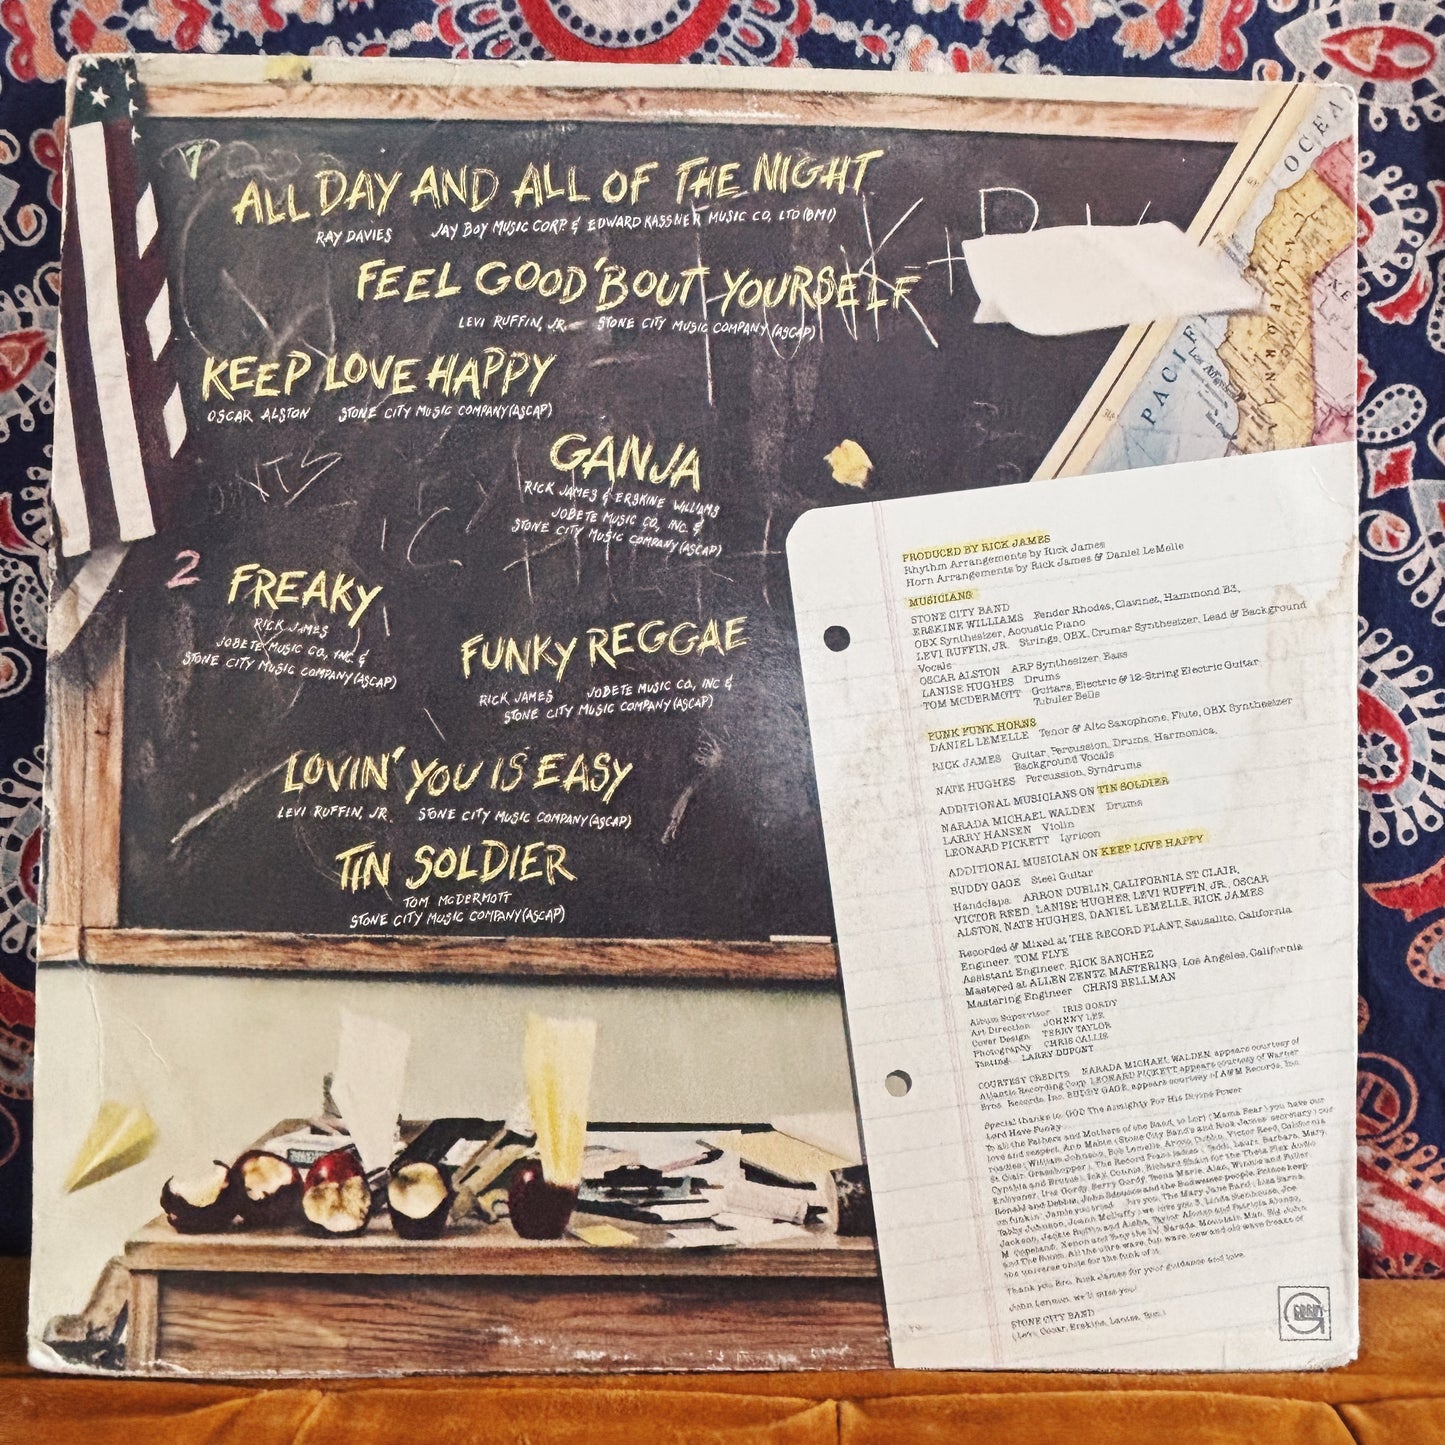 1
ALL DAY AND ALL OF THE NIGHT
RAY DAVIES JAY BOY MUSIC CORP. & EDWARD KASSNER MUSIC CO, LTD (BMI)
FEEL GOOD 'BOUT YOURSELF
LEVI RUFFIN, JR. STONE CITY MUSIC COMPANY (ASCAP)
KEEP LOVE HAPPY
OSCAR ALSTON STONE CITY MUSIC COMPANY (ASCAP)
GANJA
RICK JAMES & ERSKINE WILLIAMS
JOBETE MUSIC CO, INC. &
STONE CITY MUSIC COMPANY (ASCAP)
2
FREAKY
RICK JAMES
JOBETE MUSIC CO, INC. &
STONE CITY MUSIC COMPANY (ASCAP)
FUNKY REGGAE
RICK JAMES JOBETE MUSIC CO, INC &
STONE CITY MUSIC COMPANY (ASCAP)
LOVIN' YOU IS EASY
LEVI RUFFIN, JR. STONE CITY MUSIC COMPANY (ASCAP)
TIN SOLDIER
TOM McDERMOTT
STONE CITY MUSIC COMPANY (ASCAP)
OCEA
PACIFI
Los Angeles
PRODUCED BY RICK JAMES
Rhythm Arrangements by Rick James
Horn Arrangements by Rick James & Daniel LeMelle
MUSICIANS
STONE CITY BAND
ERSKINE WILLIAMS Fender Rhodes, Clavinet, Hammond B3,
OBX Synthesizer, Acoustic Piano
LEVI RUFFIN, JR. Strings, OBX, Crumar Synthesizer, Lead & Background
Vocals
OSCAR ALSTON ARP Synthesizer, Bass
LANISE HUGHES Drums
TOM MCDERMOTT Guitars, Electric & 12-String Electric Guitar,
Tubuler Bells
PUNK FUNK HORNS
DANIEL LEMELLE Tenor & Alto Saxophone, Flute, OBX Synthesizer
RICK JAMES Guitar, Percussion, Drums, Harmonica,
Background Vocals
NATE HUGHES Percussion, Syndrums
ADDITIONAL MUSICIANS ON TIN SOLDIER
NARADA MICHAEL WALDEN Drums
LARRY HANSEN Violin
LEONARD PICKETT Lyricon
ADDITIONAL MUSICIAN ON KEEP LOVE HAPPY
BUDDY GAGE Steel Guitar
Handclaps ARRON DUBLIN, CALIFORNIA ST CLAIR,
VICTOR REED, LANISE HUGHES, LEVI RUFFIN, JR., OSCAR
ALSTON, NATE HUGHES, DANIEL LEMELLE, RICK JAMES
Recorded & Mixed at THE RECORD PLANT, Sausalito, California
Engineer TOM FLYE
Assistant Engineer RICK SANCHEZ
Mastered at ALLEN ZENTZ MASTERING, Los Angeles, California
Mastering Engineer CHRIS BELLMAN
Album Supervisor IRIS GORDY
Art Direction JOHNNY LEE
Cover Design TERRY TAYLOR
Photography CHRIS CALLIS
Tinting LARRY DUPONT
COURTESY CREDITS NARADA MICHAEL WALDEN appears courtesy of
Atlantic Recording Corp. LEONARD PICKETT appears courtesy of Warner
Bros. Records, Inc. BUDDY GAGE, appears courtesy of A&M Records, Inc.
Special thanks to GOD The Almighty For His Divine Power
Lord Have Funky
To all the Fathers and Mothers of the Band, to Lori (Mama Bear) you have our
love and respect, Ann Marie (Stone City Band's and Rick James' secretary) our
Thank you Bro. Rick James for your guidance and love
John Lennon, we'll miss you!
STONE CITY BAND
(Levi, Oscar, Erskine, Lanise, Tom)
GORDY